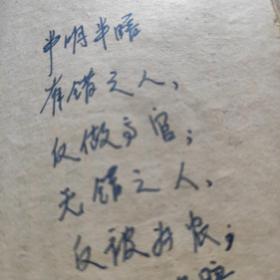 半明半暗
有错之人,
反做高官;
无错之人,
反被为农;